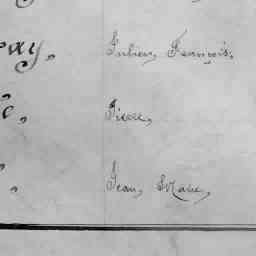 ay, Julien, François,
Pierre,
Jean, Marie,